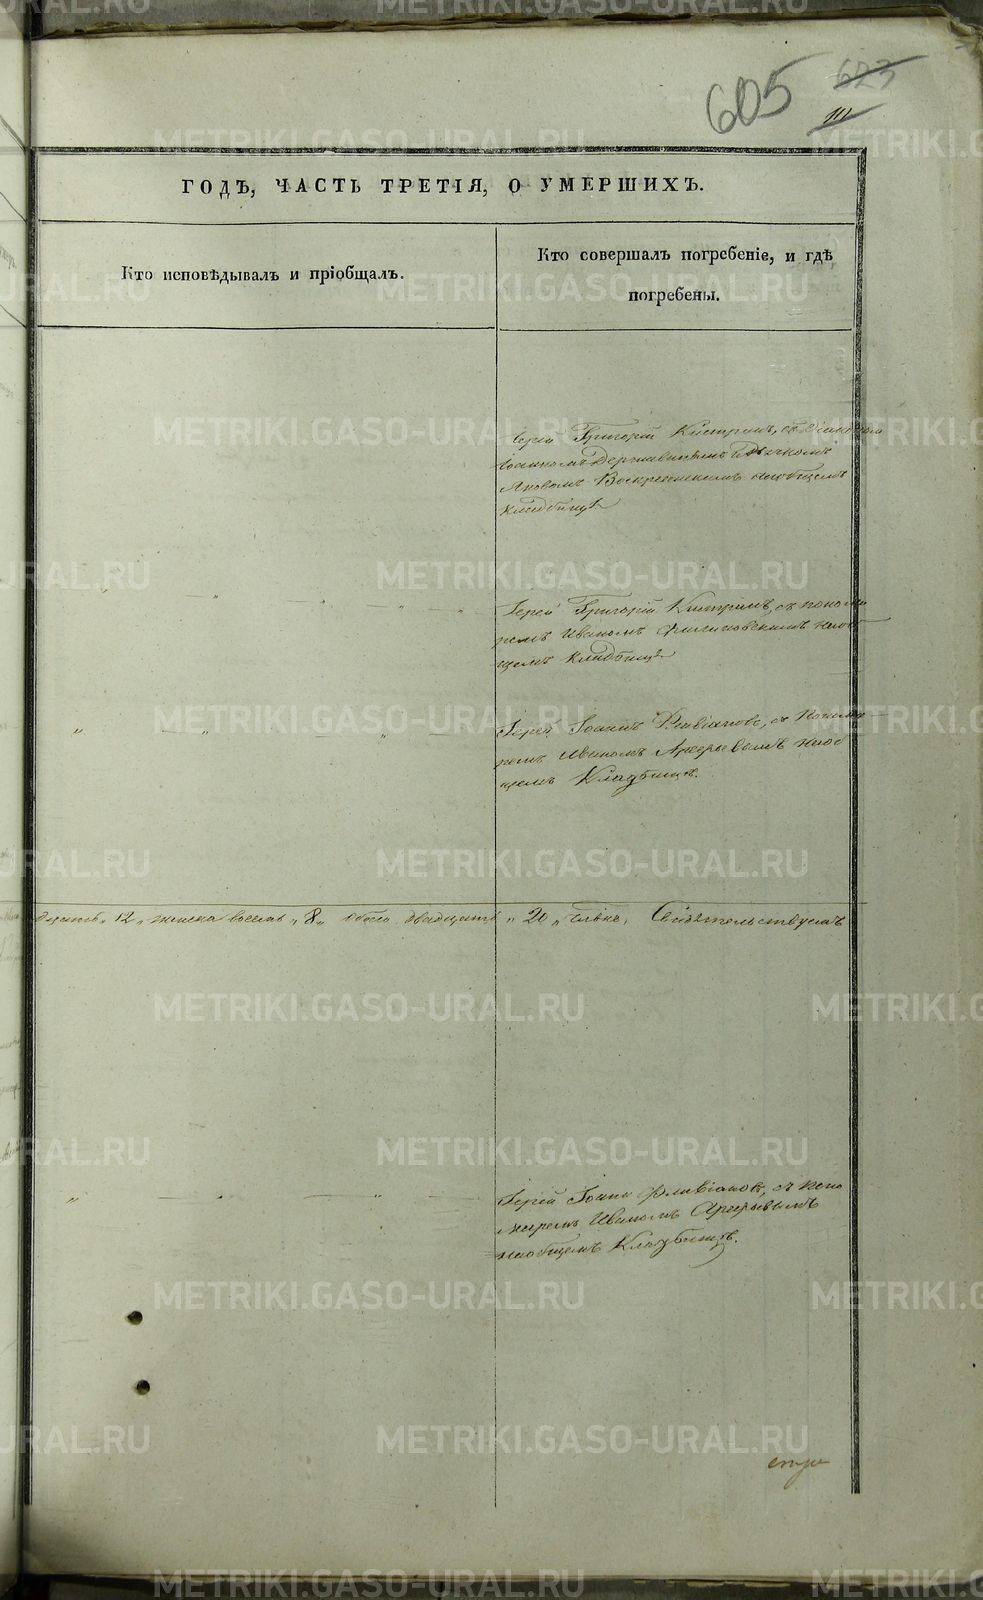 605 623
ГОДЪ, ЧАСТЬ ТРЕТІЯ, О УМЕРШИХЪ.
Кто исповѣдывалъ и пріобщалъ.
Кто совершалъ погребеніе, и гдѣ
погребены.
Іерей Григорій
Іоанномъ Державинымъ и дьячкомъ
Яковомъ Воскресенскимъ на общемъ
кладбищѣ
Іерей Григорій съ понома
ремъ Иваномъ на об
щемъ кладбищѣ
Іерей Іоаннъ Флавіановъ, съ понома
ремъ Иваномъ Арефьевымъ на об
щемъ Кладбищѣ.
дцать „12„ женска восемь „8„ обоего двадцать „20„ Свидѣтельствуемъ
Іерей Іоаннъ Флавіановъ, съ поно
маремъ Иваномъ Арефьевымъ
на общемъ Кладбищѣ.
METRIKI.GASO-URAL.RU